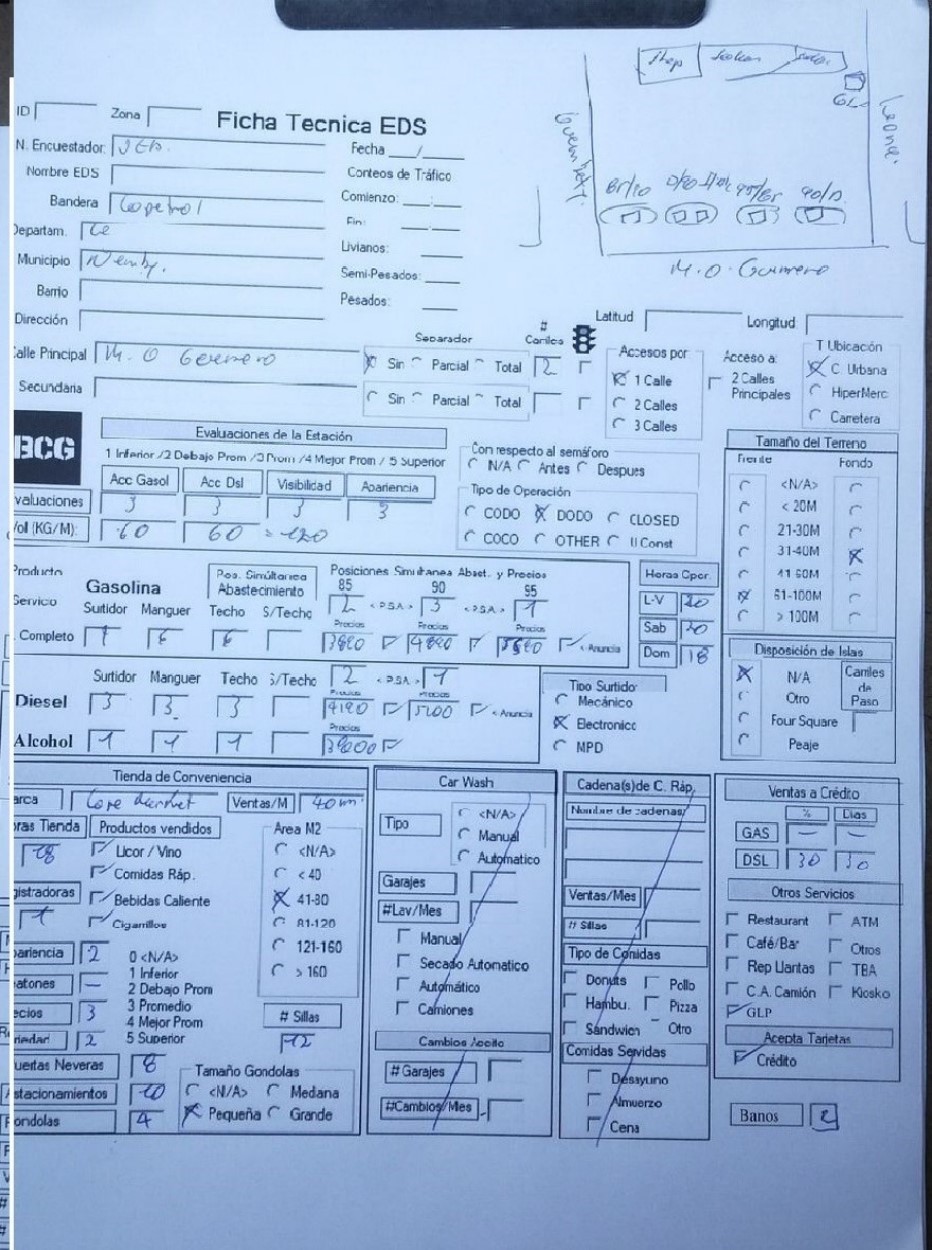 Shop
GL
ID Zona Ficha Tecnica EDS
N. Encuestador:
Fecha / 
Nombre EDS
Conteos de Tráfico
Bandera Copetrol
Comienzo: :
Fin: :
Departam. Ce
Livianos:
Municipio Nemby.
Semi-Pesados:
Barrio
Pesados:
M. O. Guerrero
Dirección
Latitud Longitud
Calle Principal M. O Guerrero
Separador # Carriles
Sin Parcial Total 2
Secundaria
Sin Parcial Total
Accesos por
1 Calle
2 Calles
3 Calles
Acceso a:
2 Calles
Principales
T Ubicación
C. Urbana
HiperMerc
Carretera
BCG
Evaluaciones de la Estación
1 Inferior /2 Debajo Prom /3 Prom /4 Mejor Prom / 5 Superior
Acc Gasol Acc Dsl Visibilidad Apariencia
valuaciones 3 3 3 3
Vol (KG/M): 60 60 = 120
Con respecto al semáforo
N/A Antes Despues
Tipo de Operación
CODO DODO CLOSED
COCO OTHER U Const
Tamaño del Terreno
Frente Fondo
<N/A>
< 20M
21-30M
31-40M
41-60M
61-100M
> 100M
Producto
Gasolina
Pos. Simúltanea
Abastecimiento
Posiciones Simultanea Abast. y Precios
85 90 95
Servico
Surtidor Manguer Techo S/Techo
2 < PSA > 3 < PSA > 1
Precios Precios Precios
Completo
< Anuncia
Horas Oper.
L-V 20
Sab 20
Dom 18
Surtidor Manguer Techo S/Techo 2 < PSA > 1
Precios Precios
Diesel 3 3 3 4190 5200 < Anuncia
Precios
Alcohol 1 1 1
Tipo Surtido
Mecánico
Electronico
MPD
Disposición de Islas
N/A
Otro
Four Square
Peaje
Carriles
de
Paso
Tienda de Conveniencia
arca Ventas/M
oras Tienda
18
Productos vendidos
Licor / Vino
Comidas Ráp.
Bebidas Caliente
Cigarrillos
gistradoras
1
Area M2
<N/A>
< 40
41-80
81-120
121-160
> 160
pariencia 2
atones —
ecios 3
riedad 2
0 <N/A>
1 Inferior
2 Debajo Prom
3 Promedio
4 Mejor Prom
5 Superior
# Sillas
12
uertas Neveras 8
stacionamientos 10
ondolas 4
Tamaño Gondolas
<N/A> Medana
Pequeña Grande
Car Wash
Tipo
<N/A>
Manual
Automatico
Garajes
#Lav/Mes
Manual
Secado Automatico
Automático
Camiones
Cambios Aceite
# Garajes
#Cambios/Mes
Cadena(s)de C. Ráp.
Nombre de cadenas
Ventas/Mes
# Sillas
Tipo de Comidas
Donuts Pollo
Hambu. Pizza
Sandwich Otro
Comidas Servidas
Desayuno
Almuerzo
Cena
Ventas a Crédito
% Dias
GAS — —
DSL 30 30
Otros Servicios
Restaurant ATM
Café/Bar Otros
Rep Llantas TBA
C.A. Camión Kiosko
GLP
Acepta Tarjetas
Crédito
Banos 2